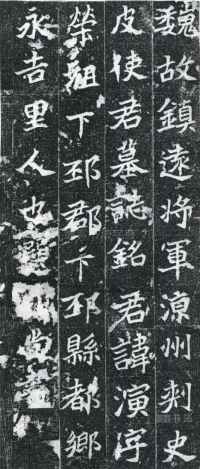 魏故鎮遠將軍涼州刺史
皮使君墓誌銘君諱演字
榮祖下邳郡下邳縣都鄉
永吉里人也